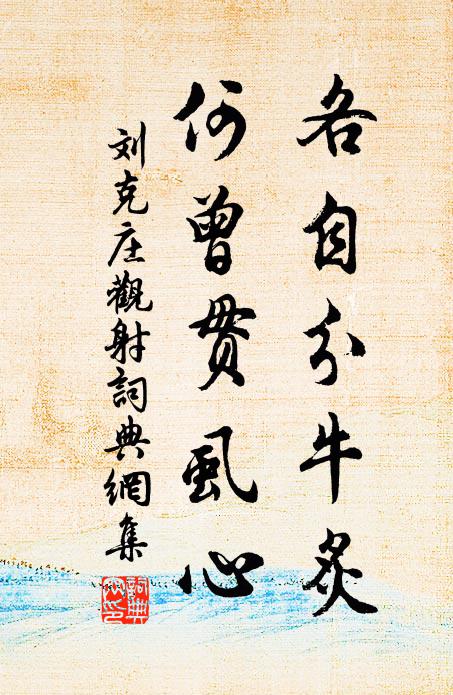 各自分牛炙
何曾贯虱心
刘克庄觀射詞典網集
詞典